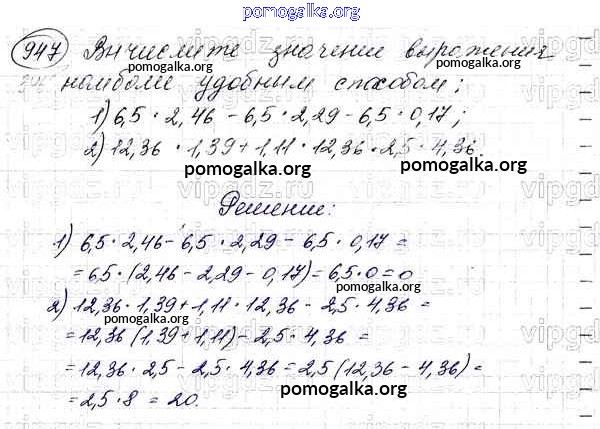 pomogalka.org
947 Вычислите значение выражения
наиболее удобным способом;
1) 6,5 · 2,46 - 6,5 · 2,29 - 6,5 · 0,17;
2) 12,36 · 1,39 + 1,11 · 12,36 · 2,5 · 4,36.
pomogalka.org pomogalka.org
Решение:
pomogalka.org
1) 6,5 · 2,46 - 6,5 · 2,29 - 6,5 · 0,17 =
= 6,5 · (2,46 - 2,29 - 0,17) = 6,5 · 0 = 0
pomogalka.org
2) 12,36 · 1,39 + 1,11 · 12,36 - 2,5 · 4,36 =
pomogalka.org
= 12,36 (1,39 + 1,11) - 2,5 · 4,36 =
= 12,36 · 2,5 - 2,5 · 4,36 = 2,5 (12,36 - 4,36) =
pomogalka.org
= 2,5 · 8 = 20.
pomogalka.org